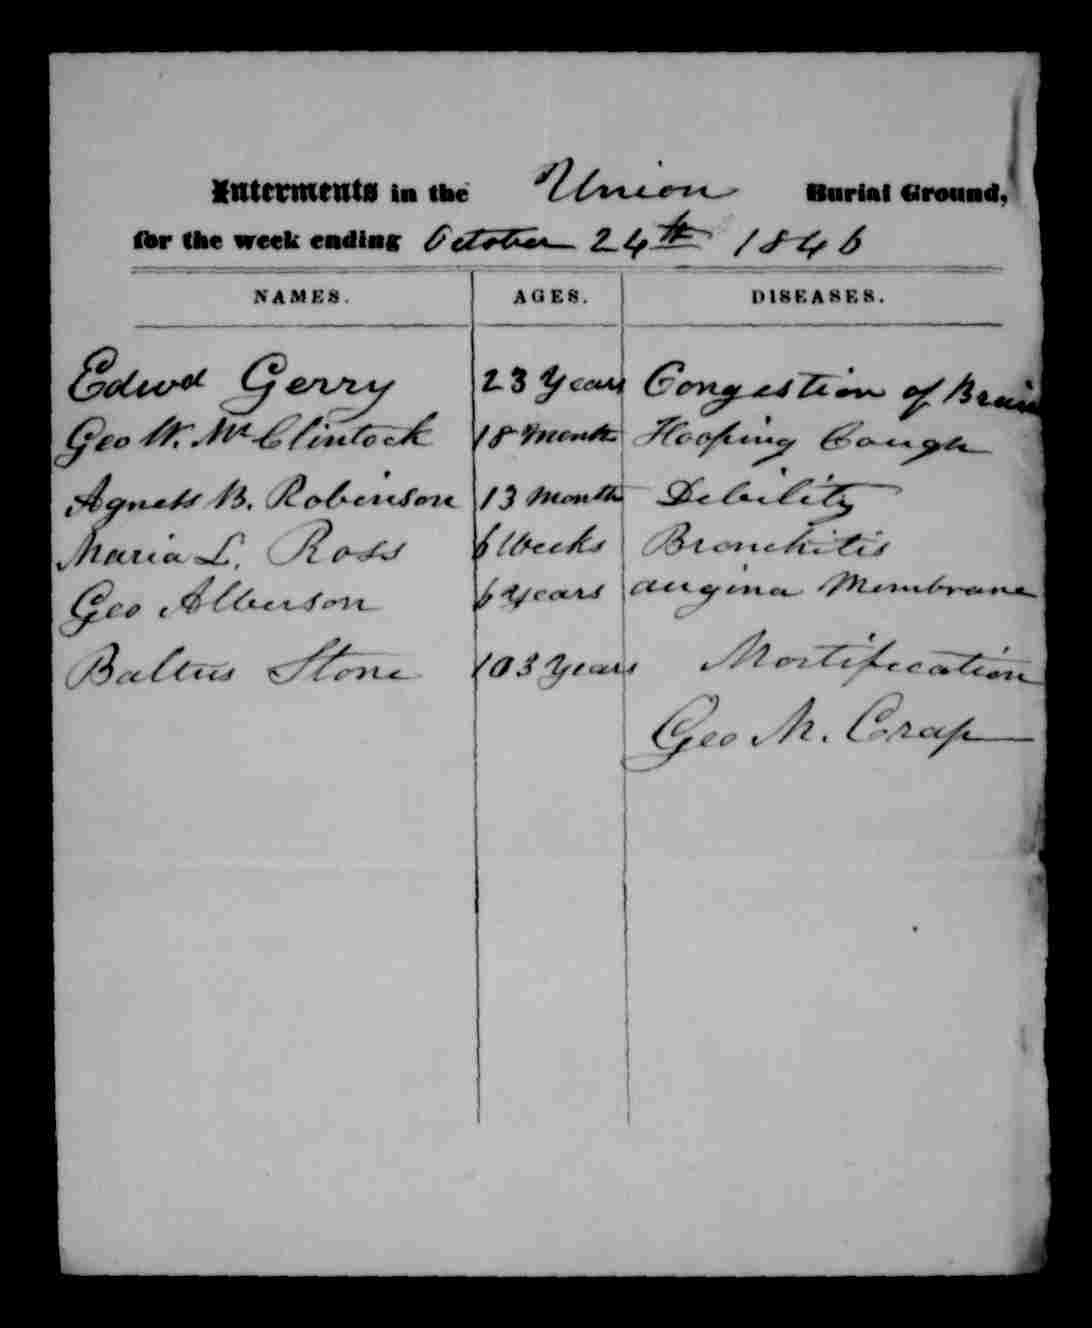 Interments in the Union Burial Ground,
for the week ending October 24th 1846
NAMES. AGES. DISEASES.
Edwd Gerry 23 Years Congestion of Brain
Geo W. Mc Clintock 18 Month Hooping Cough
Agness B. Robinson 13 Month Debility
Maria L. Ross 6 Weeks Bronchitis
Geo Alberson 6 Years Angina Membrane
Baltus Stone 103 Years Mortification
Geo M. Crap